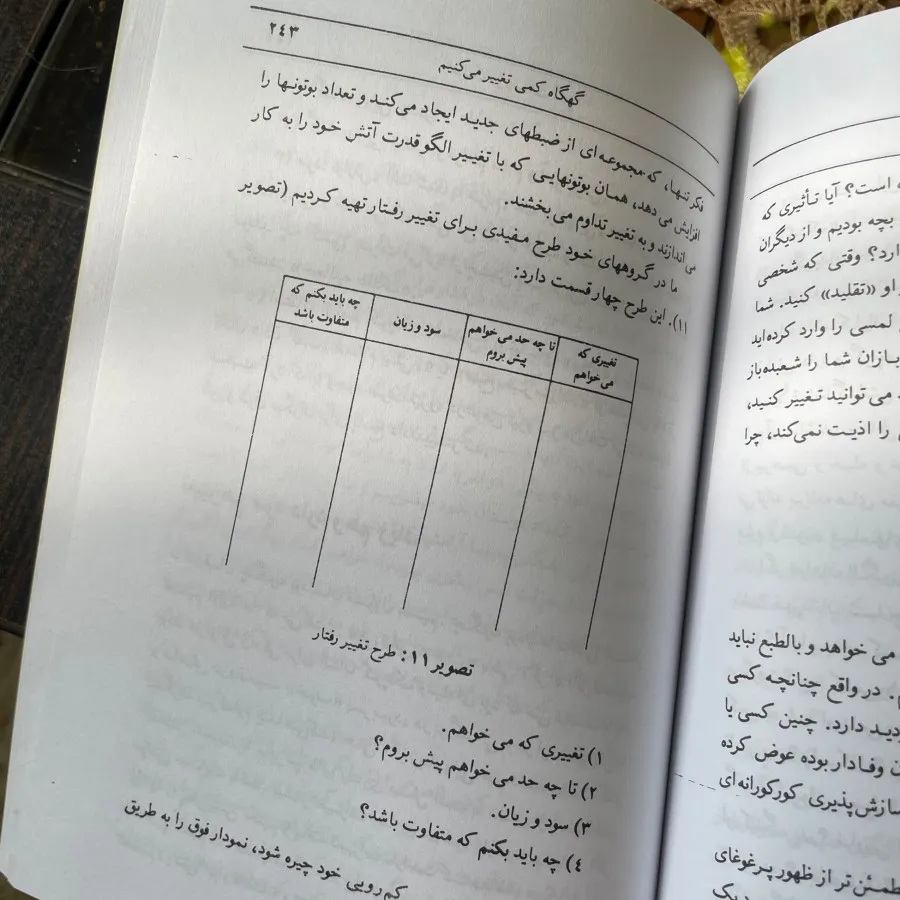 ۲۴۳
گهگاه کمی تغییر می‌کنیم
فکر تنها، که مجموعه‌ای از ضبطهای جدید ایجاد می‌کند و تعداد بوتونها را
افزایش می دهد، همان بوتونهایی که با تغییر الگو قدرت آتش خود را به کار
می اندازند و به تغییر تداوم می بخشند.
ما در گروههای خود طرح مفیدی برای تغییر رفتار تهیه کردیم (تصویر
۱۱). این طرح چهار قسمت دارد:
تغییری که می خواهم
تا چه حد می خواهم پیش بروم
سود و زیان
چه باید بکنم که متفاوت باشد
تصویر ۱۱: طرح تغییر رفتار
۱) تغییری که می خواهم.
۲) تا چه حد می خواهم پیش بروم؟
۳) سود و زیان.
۴) چه باید بکنم که متفاوت باشد؟
کم رویی خود چیره شود، نمودار فوق را به طریق
است؟ آیا تأثیری که
بچه بودیم و از دیگران
ارد؟ وقتی که شخصی
او «تقلید» کنید. شما
لمسی را وارد کرده‌اید
بازان شما را شعبده‌باز
می توانید تغییر کنید،
را اذیت نمی‌کند، چرا
می خواهد و بالطبع نباید
در واقع چنانچه کسی
دید دارد. چنین کسی یا
وفادار بوده عوض کرده
سازش‌پذیری کورکورانه‌ای
طمئن تر از ظهور پرغوغای
یک